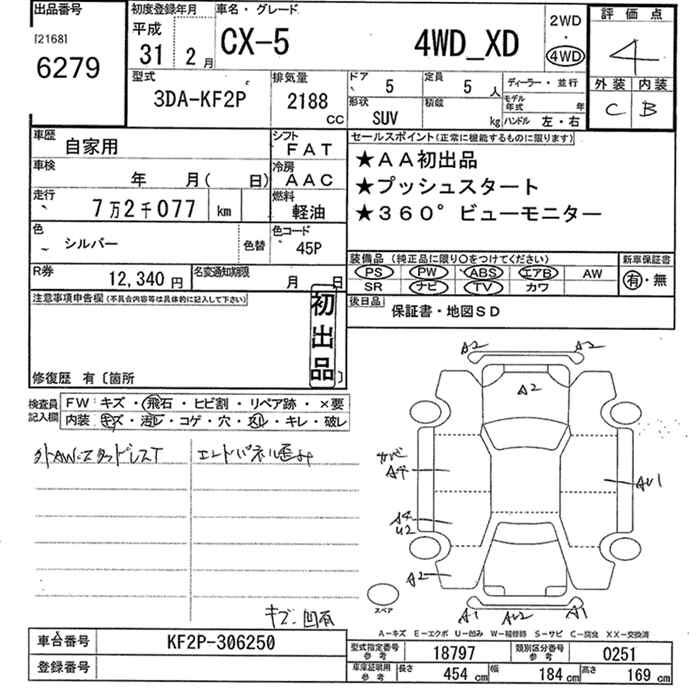 出品番号
[2168]
6279
初度登録年月
平成
31 2月
車名・グレード
CX-5 4WD_XD
2WD
・
4WD
評価点
4
外装 内装
C B
型式
3DA-KF2P
排気量
2188 CC
ドア
5
定員
5人
形状
SUV
積載
kg
ディーラー・並行
モデル年式 年
ハンドル 左・右
車歴
自家用
シフト
FAT
車検
年 月( 日)
冷房
AAC
走行
7万2千077 km
燃料
軽油
色
シルバー
色替
色コード
45P
R券
12,340円
名変通知期限
月 日
セールスポイント(正常に機能するものに限ります)
★AA初出品
★プッシュスタート
★360°ビューモニター
装備品(純正品に限り○をつけてください)
PS PW ABS エアB AW
SR ナビ TV カワ
新車保証書
有・無
後日品
保証書・地図SD
注意事項申告欄(不具合内容等は具体的に記入して下さい)
初出品
修復歴 有〔箇所 〕
検査員記入欄
FW:キズ・飛石・ヒビ割・リペア跡・×要
内装:キズ・汚レ・コゲ・穴・スレ・キレ・破レ
外AWスタッドレスT
エンドパネル歪み
キズ・凹有
A2 A2
A2
サビ
A4
AU1
A4
U2
A2
A1 AU2 A1
スペア
A-キズ E-エクボ U-凹み W-補修跡 S-サビ C-腐食 XX-交換済
車台番号
KF2P-306250
登録番号
型式指定番号
参考
18797
類別区分番号
参考
0251
車庫証明用
参考
長さ 454 cm
幅 184 cm
高さ 169 cm